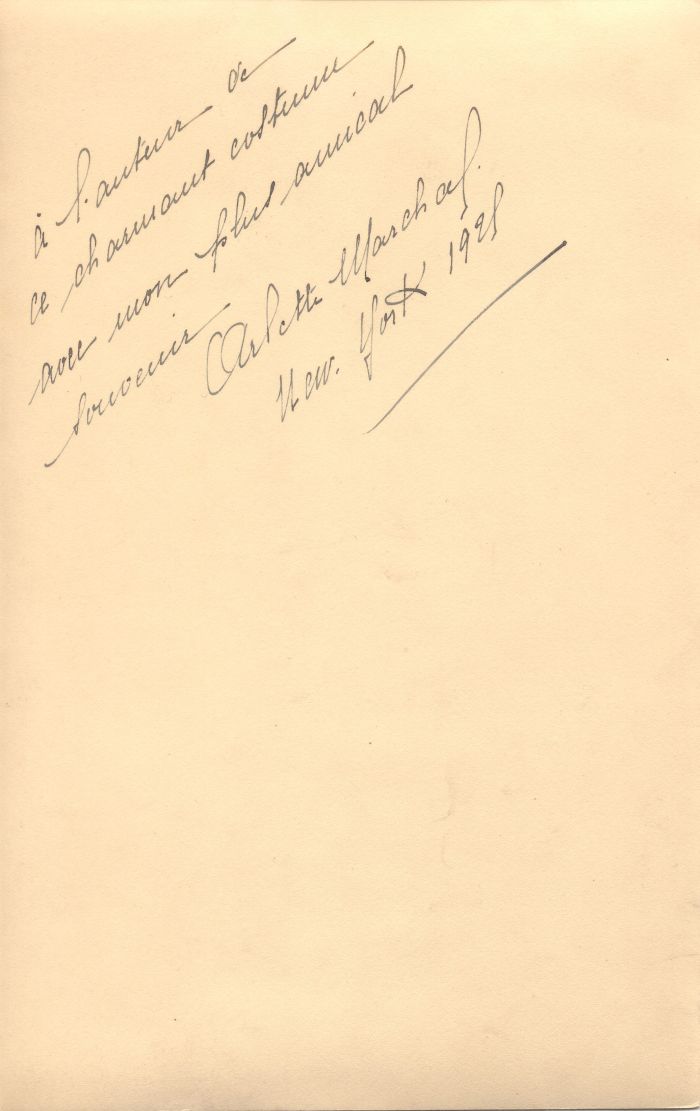 à l'auteur de
ce charmant costume
avec mon plus amical
souvenir
Arlette Marchal.
New. York 1925